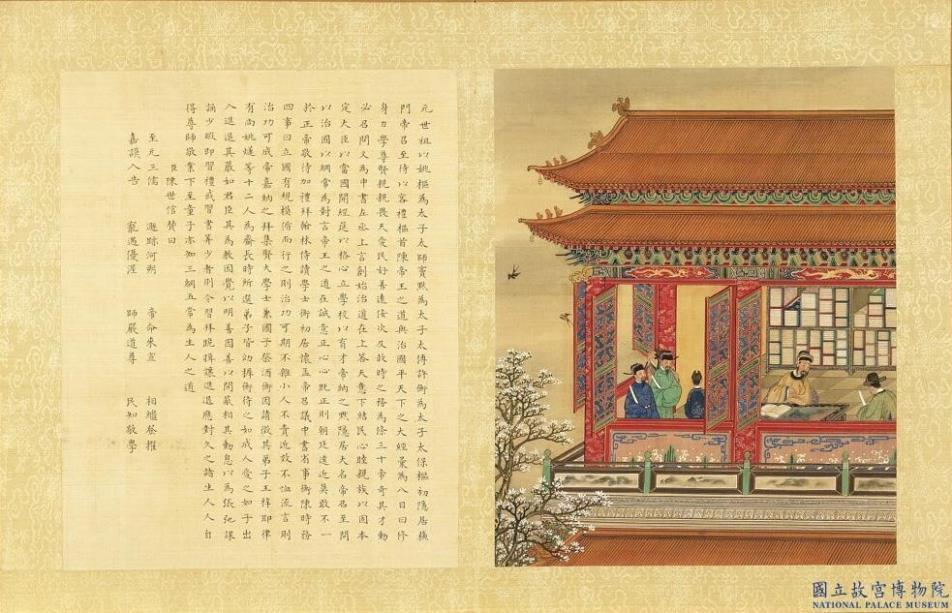 元世祖以姚樞為太子太師竇默為太子太傅許衡為太子太保樞初隱居蘇
門帝召至待以客禮樞首陳帝王之道與治國平天下之大經彙為八目曰修
身力學尊賢親親畏天愛民好善遠佞次及救時之務為條三十帝奇其才動
必召問又為中書左丞上言創始治道在上答天意下結民心睦親族以固本
定大臣以當國開經筵以格心立學校以育才帝納之默隱居大名帝召至問
以治國以綱常為對言帝王之道在誠意正心心既正則朝廷遠近莫敢不一
於正帝敬待加禮拜翰林侍讀學士衡初居懷孟帝召議中書省事衡陳時務
四事曰立國有規模循而行之則治功可期不雜小人不責近效不恤流言則
治功可成帝嘉納之拜集賢大學士兼國子祭酒衡因請徵其弟子王梓耶律
有尚姚燧等十二人為齋長時所選弟子皆幼穉衡待之如成人愛之如子出
入進退其嚴如君臣其為教因覺以明善因善以開蔽相其動息以為張弛課
誦少暇即習禮或習書算少者則令習拜跪揖讓進退應對久之諸生人人自
得尊師敬業下至童子亦知三綱五常為生人之道
臣陳世信贊曰
至元三儒 遯跡河朔 帝命來宣 相繼登擢
嘉謨入告 寵遇優渥 師嚴道尊 民知敬學
國立故宮博物院
NATIONAL PALACE MUSEUM